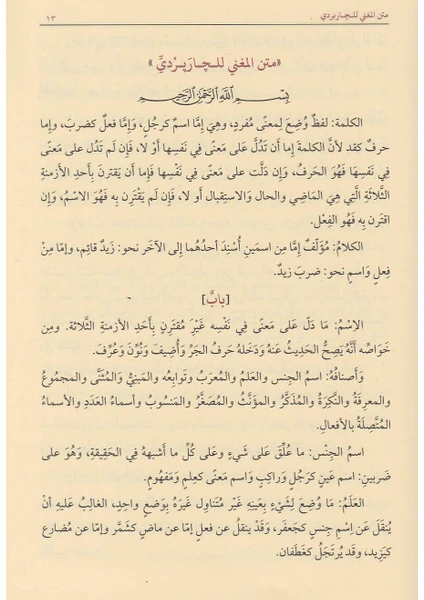 متن المغني للـچـاربردي ١٣
«متن المغني للـچـارَپـرْديِّ»
بِسْمِ اللَّهِ الرَّحْمَنِ الرَّحِيمِ
الكلمة: لفظٌ وُضِعَ لِمعنًى مُفردٍ، وهيَ إمَّا اسمٌ كرجُلٍ، وَإمَّا فعلٌ كضربَ، وإما
حرفٌ كقد لأنَّ الكلمةَ إما أن تَدُلَّ عَلى مَعنًى في نَفسِها أوْ لَا، فإن لَم تَدُل على مَعنًى
في نَفسِهَا فَهُوَ الحَرفُ، وَإن دَلَّت عَلى مَعنًى في نَفْسِها فإما أن يَقترنَ بأَحدِ الأزمنةِ
الثَّلاثَةِ الَّتِي هِيَ المَاضِي والحال وَالاستِقبال أو لا، فَإن لَم يَقْتَرِن بِه فَهُوَ الاسْمُ، وَإن
اقترن بِهِ فَهُو الفِعْل.
الكلامُ: مُؤَلَّفٌ إمَّا مِن اسمَينِ أُسْنِدَ أحدُهُما إلى الآخَر نحو: زَيدٌ قائِم، وإمّا مِنْ
فِعلٍ وَاسمٍ نحو: ضربَ زيدٌ.
[بابٌ]
الاِسْمُ: مَا دَلَّ عَلى مَعنًى في نَفْسِه غَيْرَ مُقتَرِنٍ بِأَحَدِ الأزمنةِ الثَّلاثة. ومِن
خَوَاصِّه أنَّهُ يَصِحُّ الحَدِيثُ عَنهُ وَدَخَلَهُ حَرفُ الجَرِّ وَأُضِيفَ وَنُوِّنَ وَعُرِّفَ.
وَأصنافُهُ: اسمُ الجِنس والعَلمُ والمُعرَبُ وتَوابِعُه والمَبنِيُّ والمُثَنَّى والمجمُوعُ
والمعرِفَةُ والنَّكِرَةُ والمُذَكَّرُ والمؤنَّثُ والمُصَغَّرُ والمَنسُوبُ وأسماءُ العَدَدِ والأسماءُ
المُتَّصِلَةُ بالأفعالِ.
اسمُ الجِنْس: ما عُلِّقَ عَلى شَيءٍ وعَلى كُلِّ ما أشبهه في الحَقِيقَةِ، وَهُوَ عَلى
ضَربينِ: اسم عَينٍ كَرَجُلٍ وَرَاكِبٍ وَاسم مَعنًى كعِلمٍ وَمَفهُومٍ.
العَلَمُ: مَا وُضِعَ لِشَيْءٍ بِعَينِهِ غَيْرَ مُتناوِلٍ غَيرَهُ بِوَضعٍ واحِدٍ، الغالبُ عليه أنْ
يُنقَلَ عَن اِسْمِ جِنسٍ كجَعفَرٍ، وَقَدْ يَنقلُ عَن فعلٍ إمّا عن ماضٍ كشَمَّر وإمّا عن مُضارِعٍ
كيَزِيد، وقد يُرتَجَلُ كَغَطفَان.